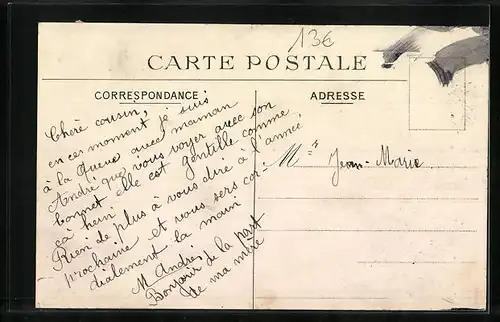 13€
CARTE POSTALE
CORRESPONDANCE
ADRESSE
Chère cousin,
en ces moment, je suis
à la Queue avec maman
André que vous voyer avec son
bonnet elle est gentille comme
ça hein
Rien de plus à vous dire à l'année
prochaine et vous sers cor-
dialement la main
M André,
Bonjour de la part
de ma mère
Mr Jean-Marie